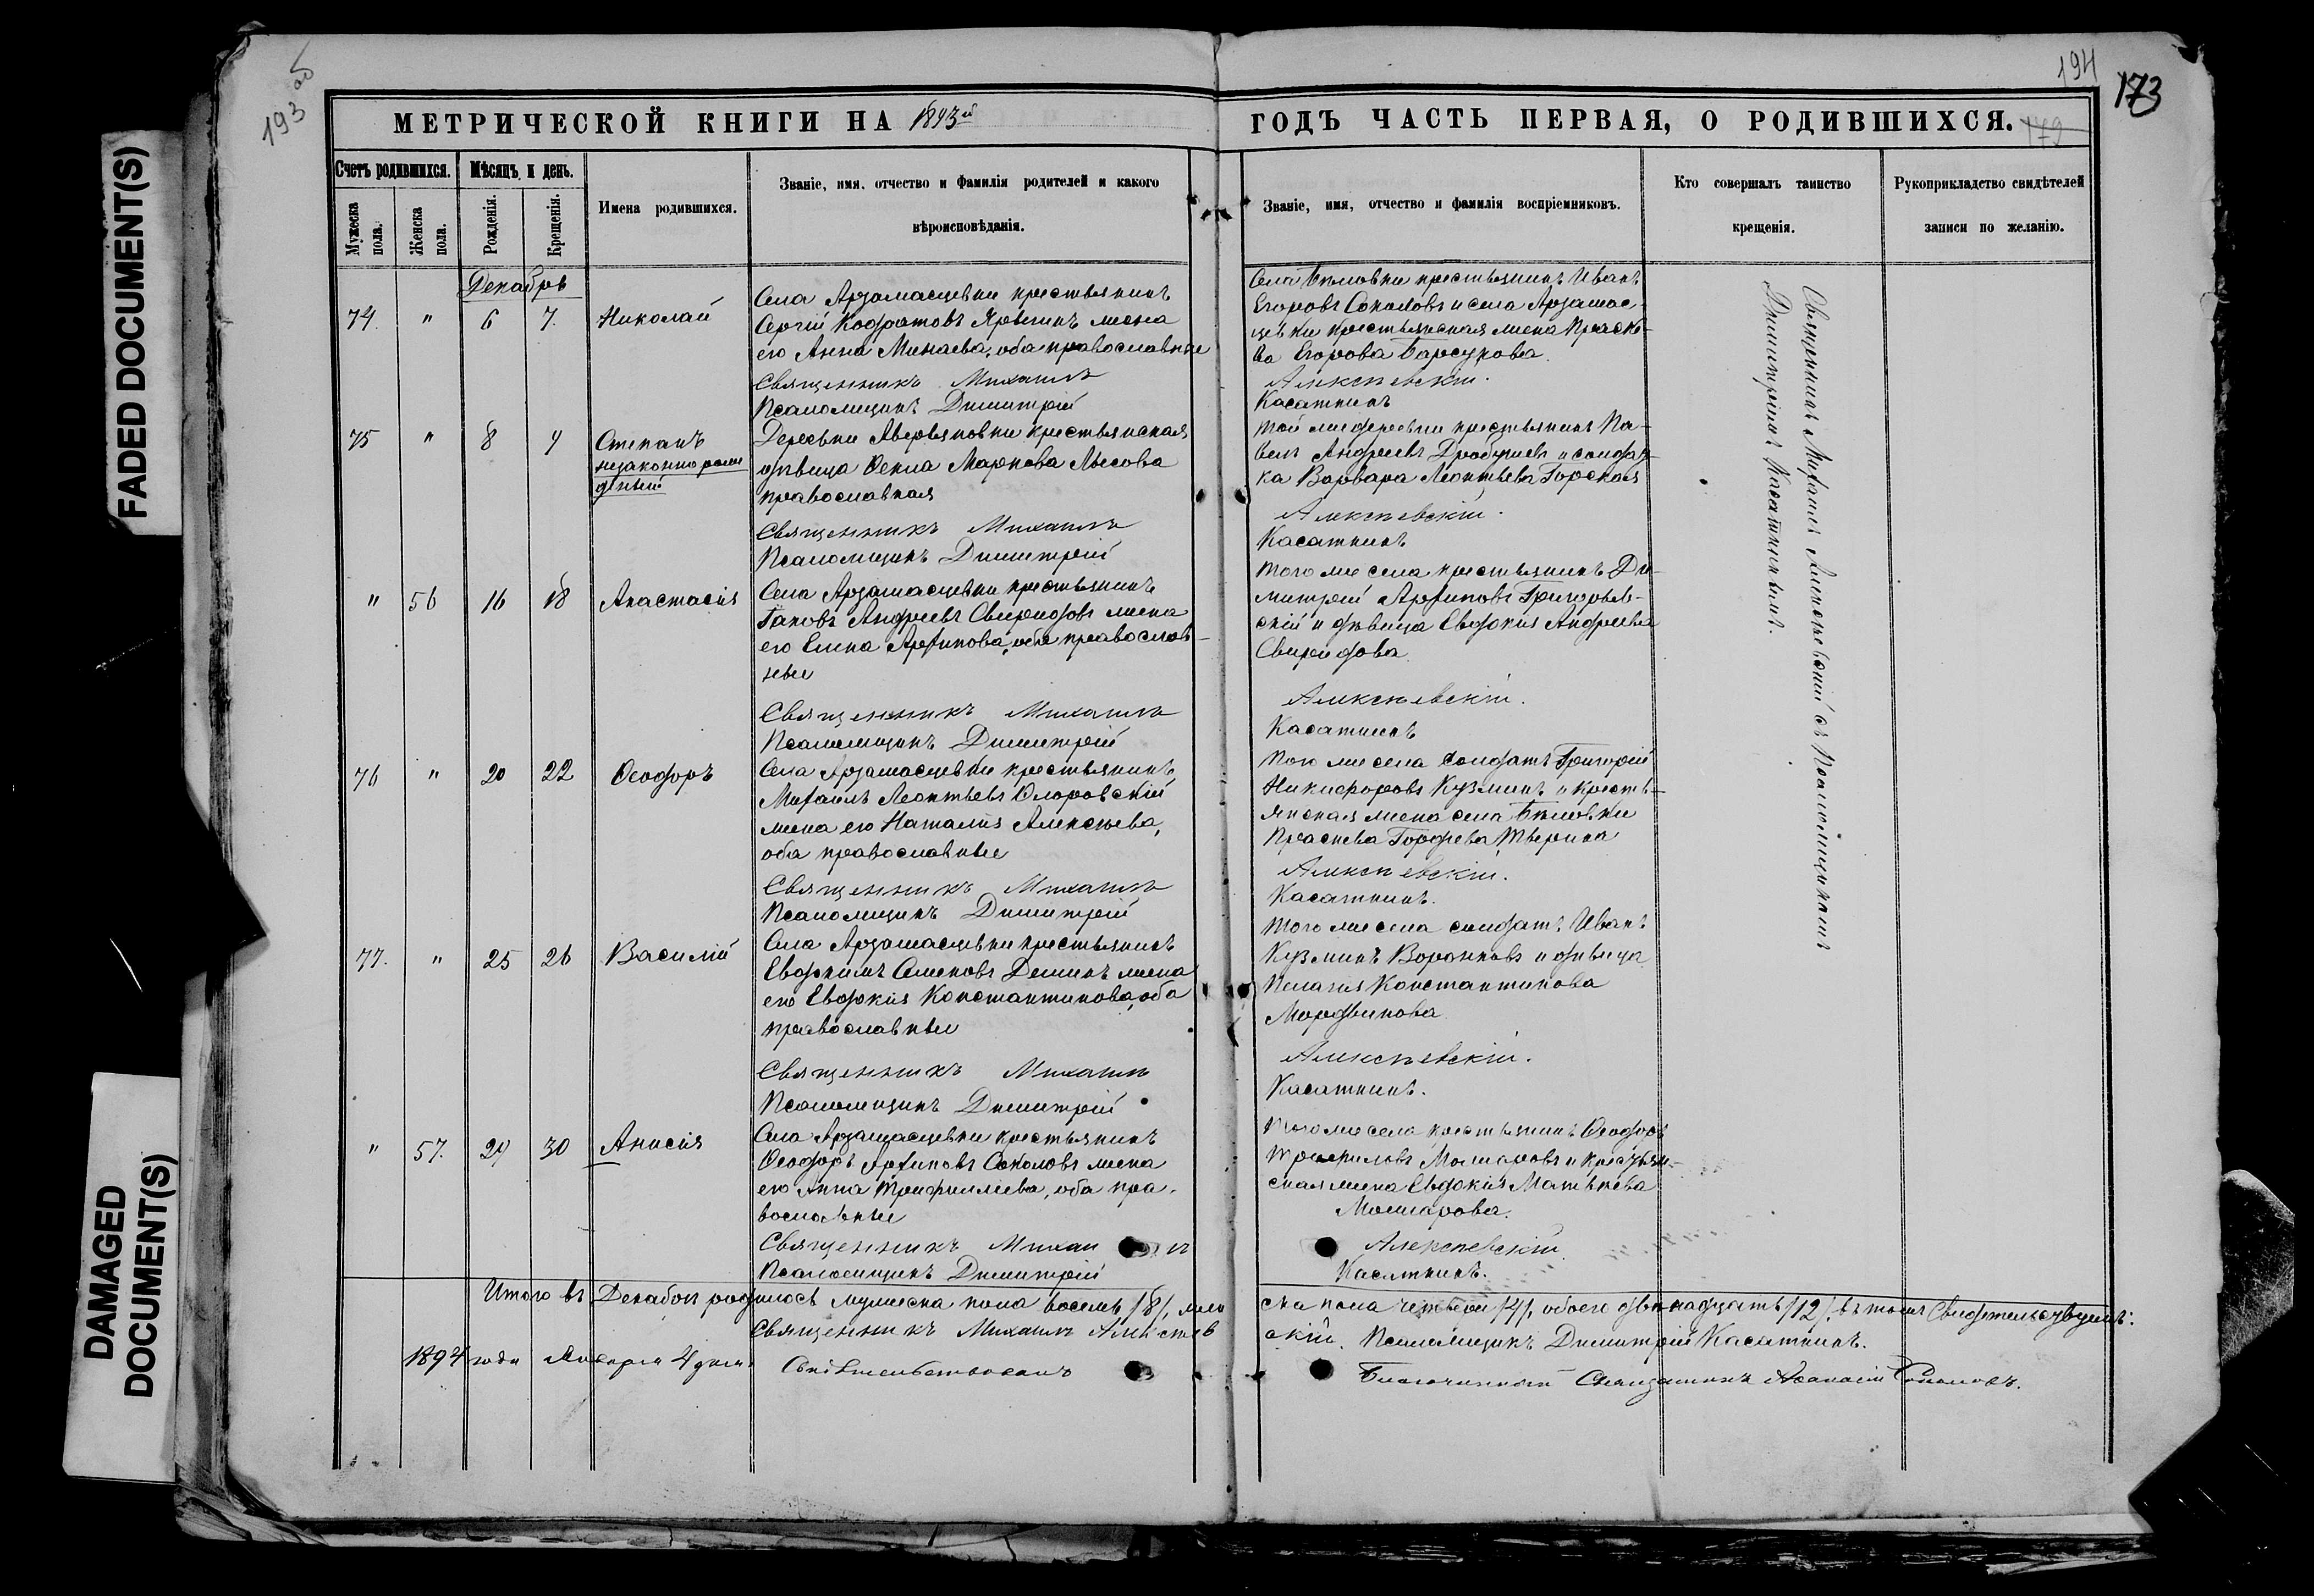 193 об
194
173
179
МЕТРИЧЕСКОЙ КНИГИ НА 1893й
ГОДЪ ЧАСТЬ ПЕРВАЯ, О РОДИВШИХСЯ.
Счетъ родившихся.
Мужеска пола.
Женска пола.
Мѣсяцъ и день.
Рожденія.
Крещенія.
Имена родившихся.
Званіе, имя, отчество и фамилія родителей и какого
вѣроисповѣданія.
Званіе, имя, отчество и фамилія воспріемниковъ.
Кто совершалъ таинство
крещенія.
Рукоприкладство свидѣтелей
записи по желанію.
Декабрь
74 " 6 7. Николай
Села Арзамасцевки крестьянинъ
Сергій Кодратовъ жена
его Анна Минаева, оба православные
Священникъ Михаилъ
Псаломщикъ Димитрій
Села Бѣловки крестьянинъ Иванъ
Егоровъ Соколовъ и села Арзамас-
цевки крестьянская жена Праско-
ва Егорова Барсукова.
Алексѣевскій.
Касаткинъ
75 " 8 9 Степанъ
незаконнорож
денный
Деревни Аверьяновки крестьянская
дѣвица Ѳекла Маркова Лысова
православная
Священникъ Михаилъ
Псаломщикъ Димитрій
Той же деревни крестьянинъ Па-
велъ Андреевъ и солдат-
ка Варвара Леонтьева Горская
Алексѣевскій.
Касаткинъ
" 56 16 18 Анастасія
Села Арзамасцевки крестьянинъ
Іаковъ Андреевъ Свиридовъ жена
его Елена Архипова, оба православ-
ные
Священникъ Михаилъ
Псаломщикъ Димитрій
Того же села крестьянинъ Ди-
митрій Архиповъ Григорьев-
скій и дѣвица Евдокія Андреева
Свиридова.
Алексѣевскій.
Касаткинъ
76 " 20 22 Ѳеодоръ
Села Арзамасцевки крестьянинъ
Михаилъ Леонтьевъ
жена его Наталія Алексѣева,
оба православные
Священникъ Михаилъ
Псаломщикъ Димитрій
Того же села солдатъ Григорій
Никифоровъ Кузминъ и кресть-
янская жена села Бѣловки
Прасковья Гордѣева
Алексѣевскій.
Касаткинъ.
77. " 25 26 Василій
Села Арзамасцевки крестьянинъ
Евдокимъ Семеновъ Деминъ жена
его Евдокія Константинова, оба
православные
Священникъ Михаилъ
Псаломщикъ Димитрій
Того же села солдатъ Иванъ
Кузминъ Воронковъ и дѣвица
Пелагія Константинова
Мордвинова
Алексѣевскій.
Касаткинъ.
" 57. 29 30 Анисія
Села Арзамасцевки крестьянинъ
Ѳеодоръ Архиповъ Соколовъ жена
его Анна Трифиллева, оба пра-
вославные
Священникъ Михаилъ
Псаломщикъ Димитрій
Того же села крестьянинъ Ѳеодоръ
Трифиловъ и крестьян-
ская жена Евдокія Матвѣева
Алексѣевскій
Касаткинъ.
Священникъ Михаилъ Алексѣевскій съ Псаломщикомъ
Димитріемъ Касаткинымъ.
Итого въ Декабрѣ родилось мужеска пола восемь /8/, жен
ска пола четыре /4/, обоего двѣнадцать /12/. въ томъ свидѣтельствуемъ:
Священникъ Михаилъ Алексѣев
скій. Псаломщикъ Димитрій Касаткинъ.
1894 года Января 4 дня Свидѣтельствовалъ
Благочинный Священникъ Соколовъ.
FADED DOCUMENT(S)
DAMAGED
DOCUMENT(S)